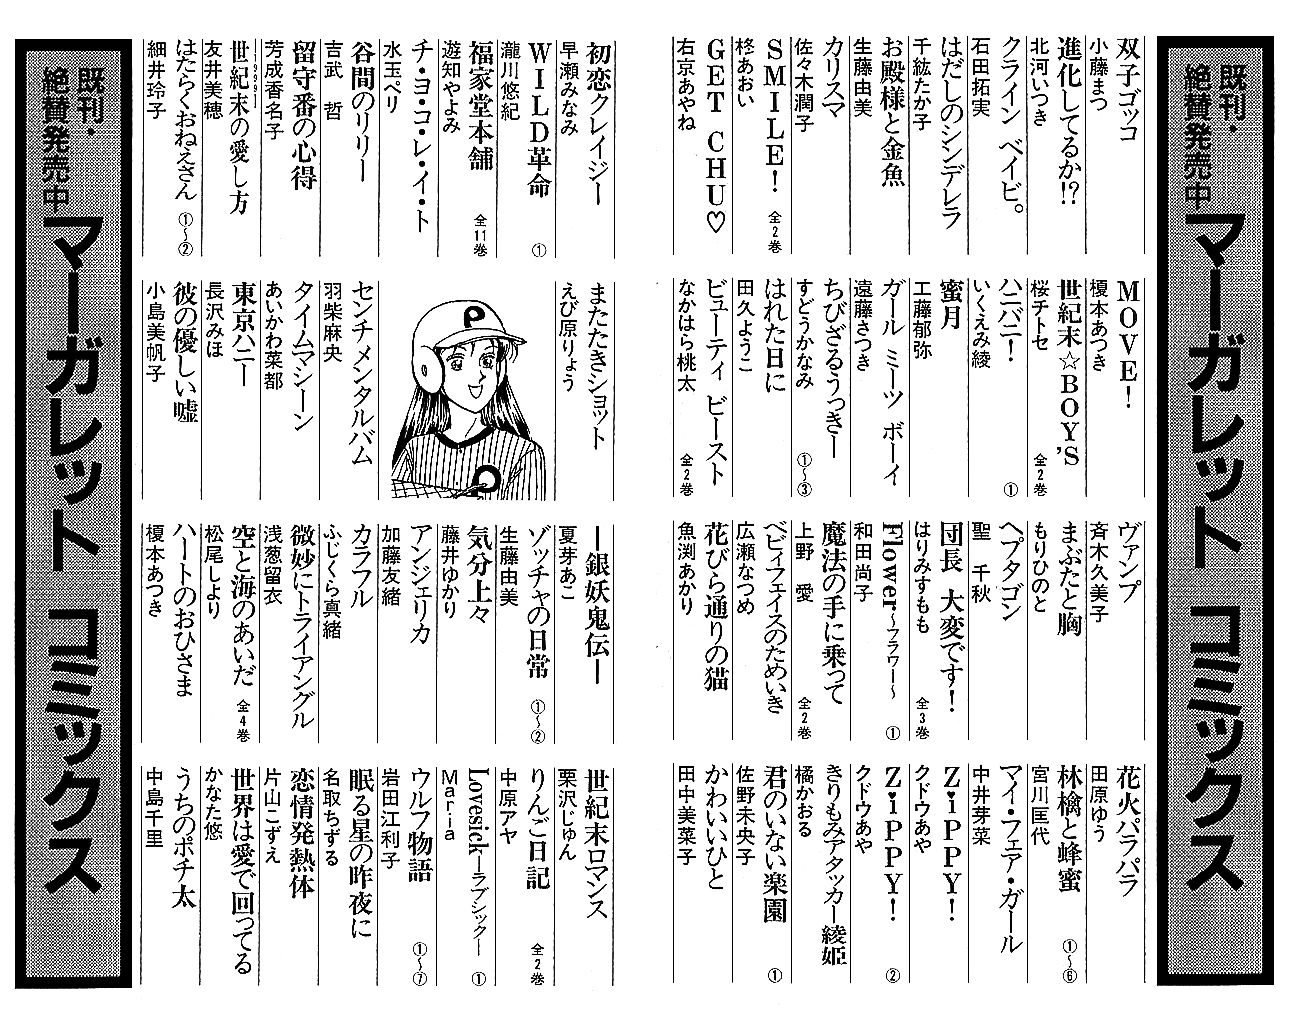 既刊・絶賛発売中
マーガレット コミックス
双子ゴッコ
小藤まつ
進化してるか!?
北河いつき
クライン ベイビ。
石田拓実
はだしのシンデレラ
千紘たか子
お殿様と金魚
生藤由美
カリスマ
佐々木潤子
SMILE! 全2巻
柊あおい
GET CHU♡
右京あやね
MOVE!
榎本あつき
世紀末☆BOY'S 全2巻
桜チトセ
ハニバニ! ①
いくえみ綾
蜜月
工藤郁弥
ガール ミーツ ボーイ
遠藤さつき
ちびざるうっきー ①~③
すどうかなみ
はれた日に
田久ようこ
ビューティ ビースト 全2巻
なかはら桃太
ヴァンプ
斉木久美子
まぶたと胸
もりひのと
ヘプタゴン
聖 千秋
団長 大変です! 全3巻
はりみすもも
Flower~フラワー~ ①
和田尚子
魔法の手に乗って 全2巻
上野 愛
ベビィフェイスのためいき
広瀬なつめ
花びら通りの猫
魚渕あかり
花火パラパラ
田原ゆう
林檎と蜂蜜 ①~⑥
宮川匡代
マイ・フェア・ガール
中井芽菜
Z♥iPPY!
クドウあや
Z♥iPPY! ②
クドウあや
きりもみアタッカー綾姫
橘かおる
君のいない楽園 ①
佐野未央子
かわいいひと
田中美菜子
初恋クレイジー
早瀬みなみ
WILD革命 ①
瀧川悠紀
福家堂本舗 全11巻
遊知やよみ
チ・ヨ・コ・レ・イ・ト
水玉ペリ
谷間のリリー
吉武 哲
留守番の心得
芳成香名子
-1999-
世紀末の愛し方
友井美穂
はたらくおねえさん ①~②
細井玲子
またたきショット
えび原りょう
P
P
センチメンタルバム
羽柴麻央
タイムマシーン
あいかわ菜都
東京ハニー
長沢みほ
彼の優しい嘘
小島美帆子
―銀妖鬼伝―
夏芽あこ
ゾッチャの日常 ①~②
生藤由美
気分上々
藤井ゆかり
アンジェリカ
加藤友緒
カラフル
ふじくら真緒
微妙にトライアングル
浅葱留衣
空と海のあいだ 全4巻
松尾しより
ハートのおひさま
榎本あつき
世紀末ロマンス
栗沢じゅん
りんご日記 全2巻
中原アヤ
Lovesick―ラブシック― ①
Maria
ウルフ物語 ①~⑦
岩田江利子
眠る星の昨夜に
名取ちずる
恋情発熱体
片山こずえ
世界は愛で回ってる
かなた悠
うちのポチ太
中島千里
既刊・絶賛発売中
マーガレット コミックス